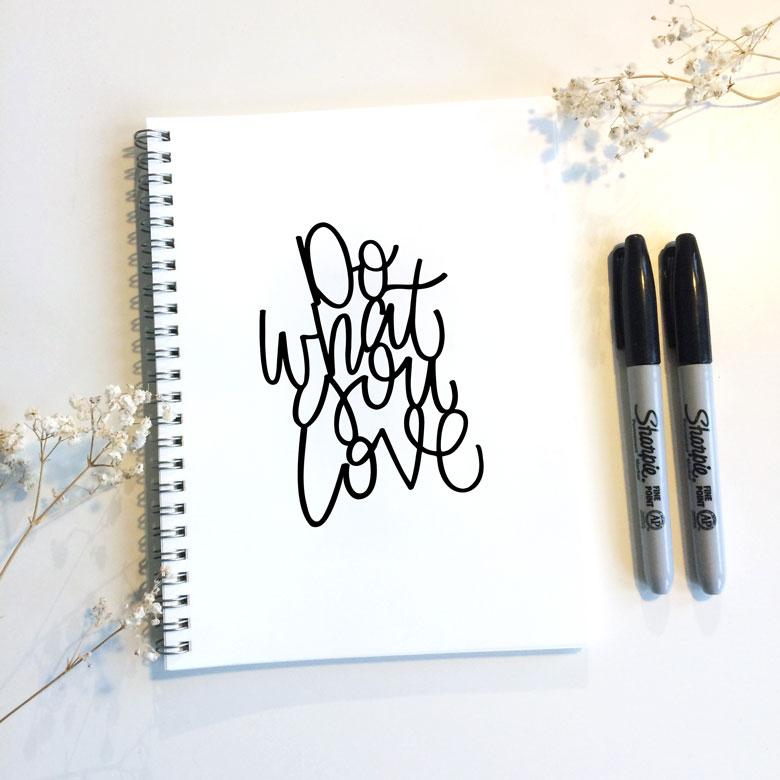 Do
what
you
love
Sharpie.
FINE
POINT
AP
Sharpie.
FINE
POINT
AP